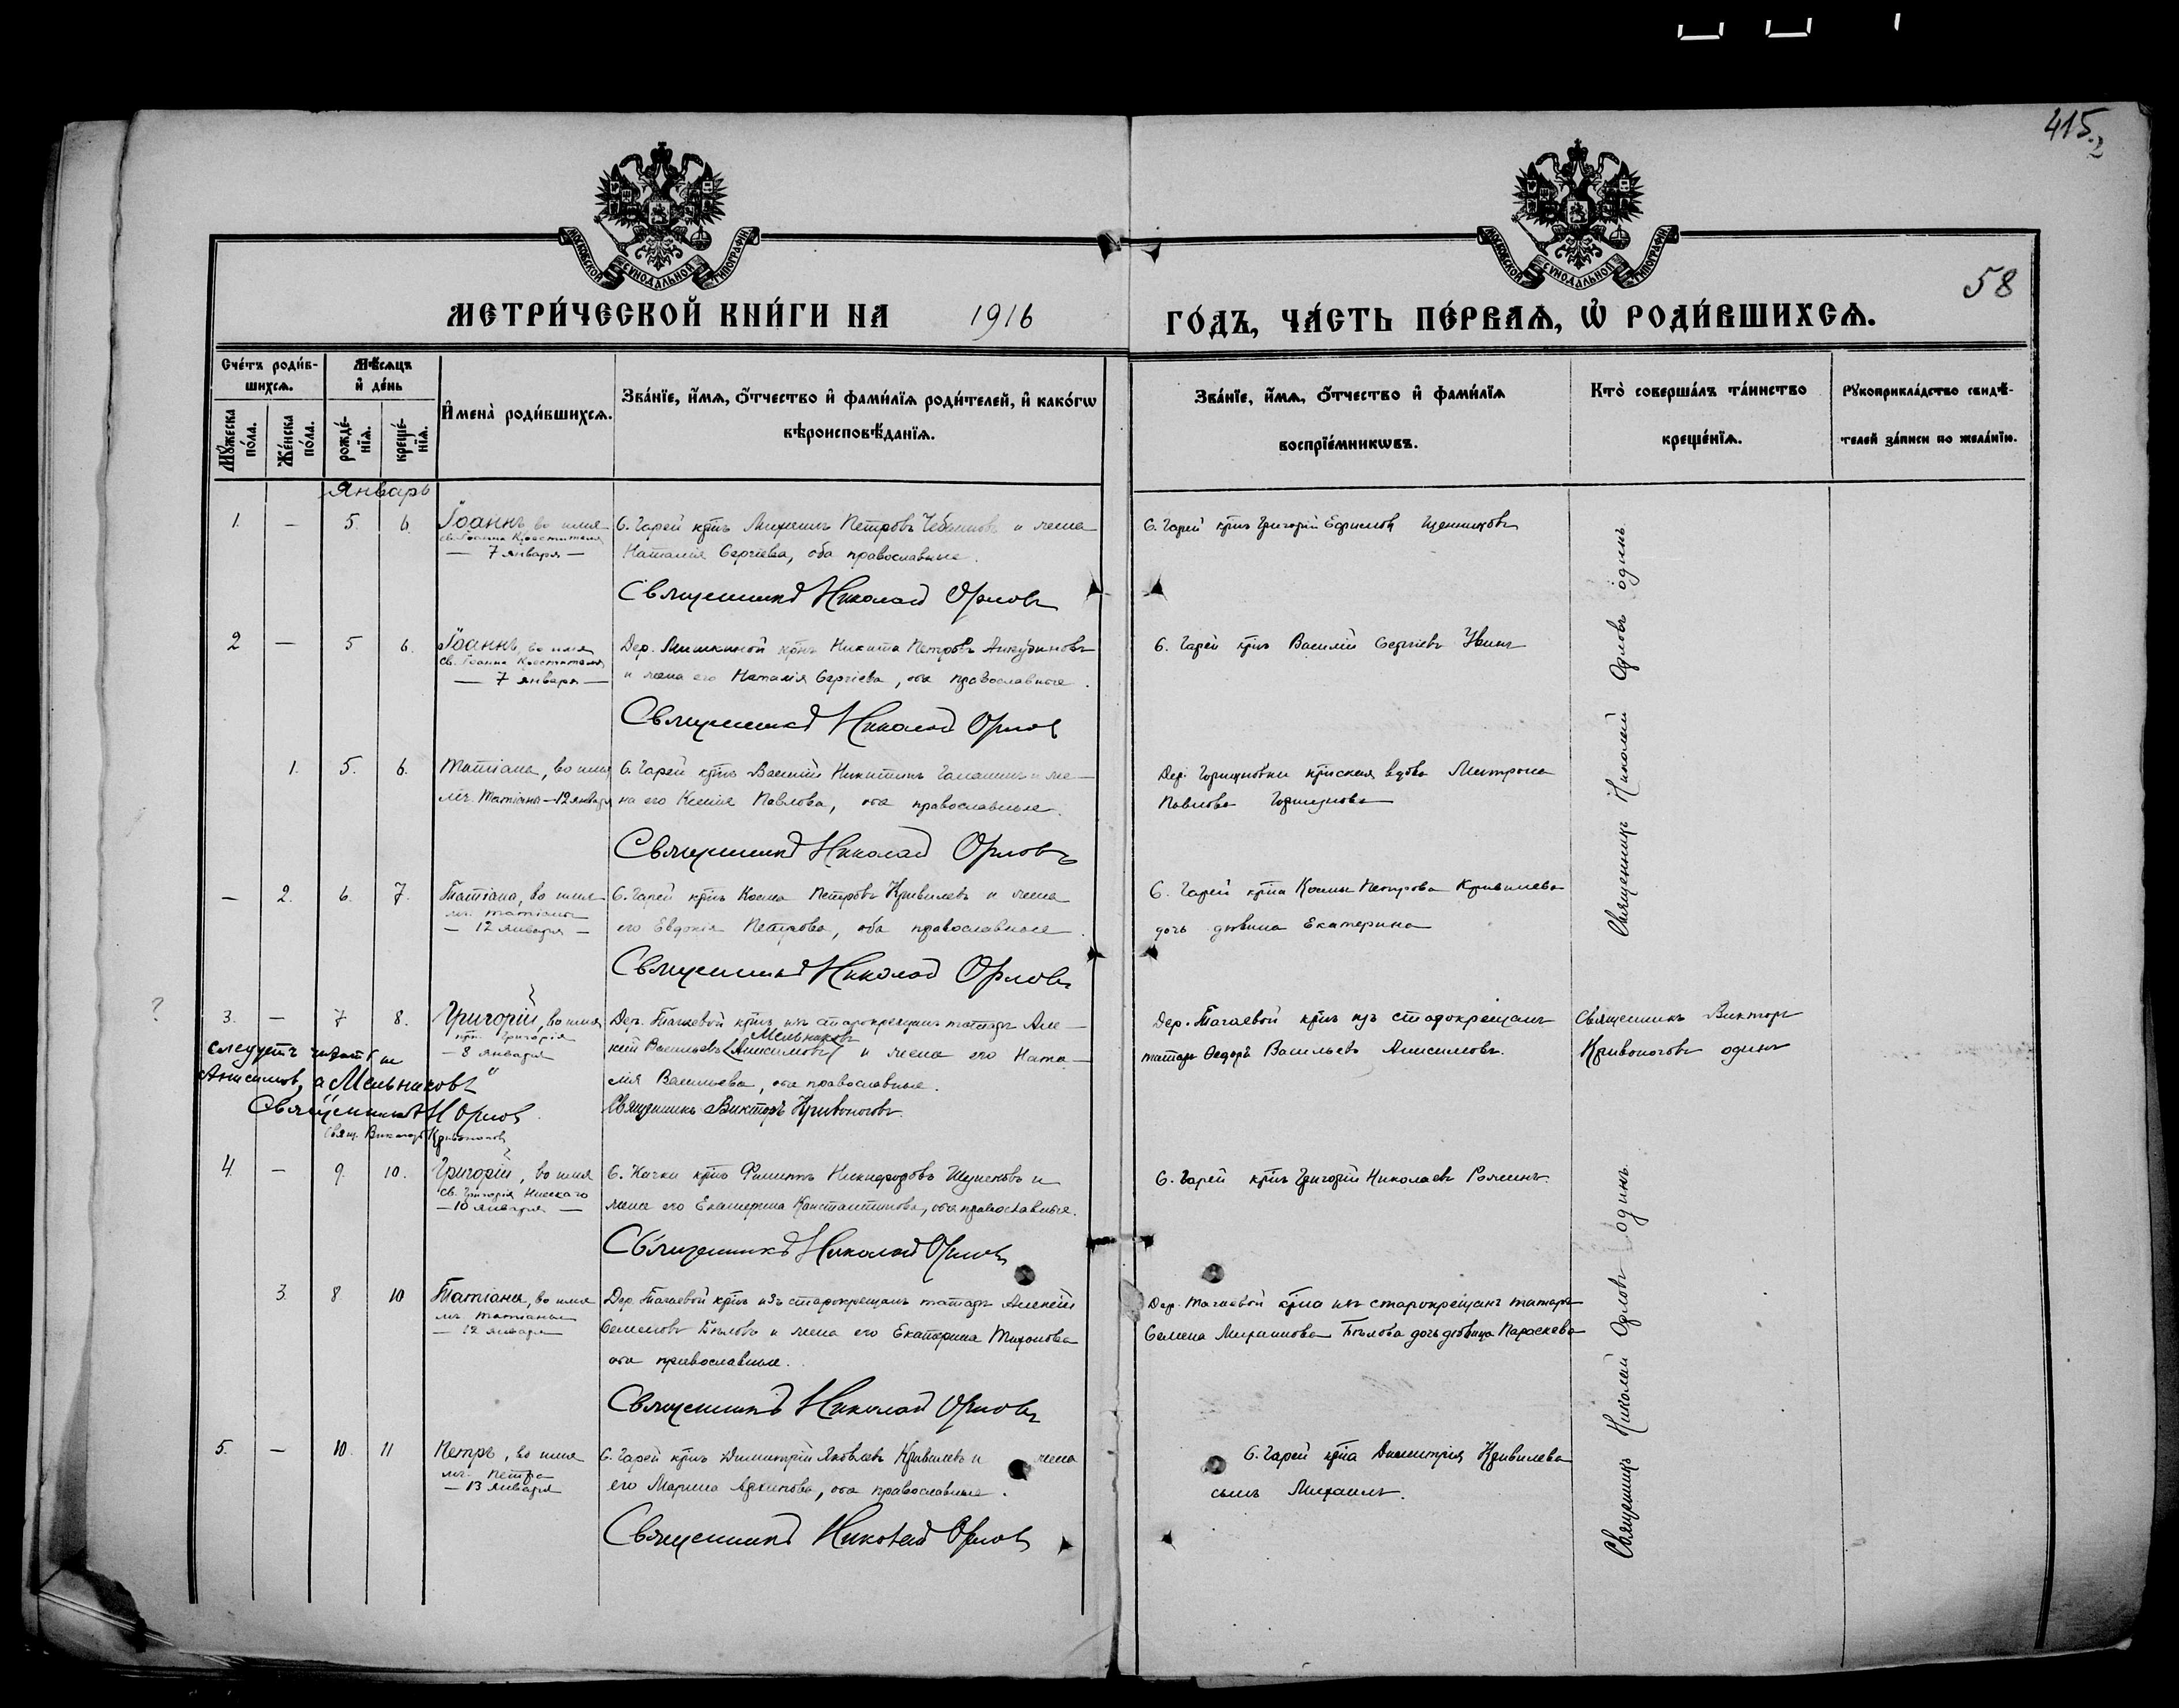 415.
2
МОСКОВСКОЙ СѴНОДАЛЬНОЙ ТИПОГРАФІИ
МОСКОВСКОЙ СѴНОДАЛЬНОЙ ТИПОГРАФІИ
58
МЕТРИ́ЧЕСКОЙ КНИ́ГИ НА 1916 ГО́ДЪ, ЧА́СТЬ ПЕ́РВАѦ, Ѡ РОДИ́ВШИХСѦ.
Сче́тъ роди́в-
шихсѧ.
Мꙋ́жеска по́ла.
Же́нска по́ла.
Мѣ́сѧцъ
и де́нь
рожде́-
нїѧ.
креще́-
нїѧ.
Имена̀ роди́вшихсѧ.
Зва́нїе, и́мѧ, ѻ́тчество и фами́лїѧ роди́телей, и како́гѡ
вѣроисповѣ́данїѧ.
Зва́нїе, и́мѧ, ѻ́тчество и фами́лїѧ
воспрїе́мникѡвъ.
Кто̀ соверша́лъ та́инство
креще́нїѧ.
Рꙋкоприкла́дство свидѣ́-
телей за́писи по жела́нїю.
Январь
1. — 5. 6. Іоаннъ, во имя
св. Іоанна Крестителя
— 7 января —
С. Гарей кр͠нъ Петровъ и жена
Наталія Сергіева, оба православные.
Священникъ Николай Орловъ
С. Гарей кр͠нъ Григорій Ефимовъ
2 — 5 6. Іоаннъ, во имя
св. Іоанна Крестителя
— 7 января —
Дер. Мишкиной кр͠нъ Никита Петровъ Анкудиновъ
и жена его Наталія Сергіева, оба православные.
Священникъ Николай Орловъ
С. Гарей кр͠нъ Василій Сергіевъ
1. 5. 6. Татіана, во имя
мч. Татіаны — 12 января
С. Гарей кр͠нъ Василій Никитинъ и же-
на его Ксенія Павлова, оба православные.
Священникъ Николай Орловъ
Дер. кр͠нская вдова Матрона
Павлова
— 2. 6. 7. Татіана, во имя
мч. Татіаны
— 12 января —
С. Гарей кр͠нъ Косма Петровъ Кривилевъ и жена
его Евдокія Петрова, оба православные.
Священникъ Николай Орловъ
С. Гарей кр͠на Космы Петрова Кривилева
дочь дѣвица Екатерина
Священникъ Николай Орловъ одинъ
?
3. — 7 8. Григорій, во имя
прп. Григорія
— 8 января
Дер. Тагаевой кр͠нъ изъ старокрещенъ татаръ Але-
Мельниковъ
ксій Васильевъ (Анисимовъ) и жена его Ната-
лія Васильева, оба православные.
Священникъ Викторъ Кривоноговъ.
Дер. Тагаевой кр͠нъ изъ старокрещенъ
татаръ Ѳедоръ Васильевъ Анисимовъ.
Священникъ Викторъ
Кривоноговъ одинъ
Слѣдуетъ читать не
Анисимов, а „Мельниковъ"
Священникъ Н Орлов
Свящ. Викторъ Кривоноговъ
4. — 9. 10. Григорій, во имя
св. Григорія Нисскаго
— 10 января —
С. Качки кр͠нъ Филиппъ Никифоровъ и
жена его Екатерина Константинова, оба православные.
Священникъ Николай Орловъ
С. Гарей кр͠нъ Григорій Николаевъ
3. 8 10 Татіана, во имя
мч. Татіаны
— 12 января
Дер. Тагаевой кр͠нъ изъ старокрещенъ татаръ Алексій
Семеновъ Бѣловъ и жена его Екатерина Тихонова
оба православные.
Священникъ Николай Орловъ
Дер. Тагаевой кр͠на изъ старокрещенъ татаръ
Семена Михаилова Бѣлова дочь дѣвица Параскева
5. — 10. 11 Петръ, во имя
мч. Петра
— 13 января
С. Гарей кр͠нъ Димитрій Яковлевъ Кривилевъ и жена
его Марина Архипова, оба православные.
Священникъ Николай Орлов
С. Гарей кр͠на Димитрія Кривилева
сынъ Михаилъ.
Священникъ Николай Орловъ одинъ.